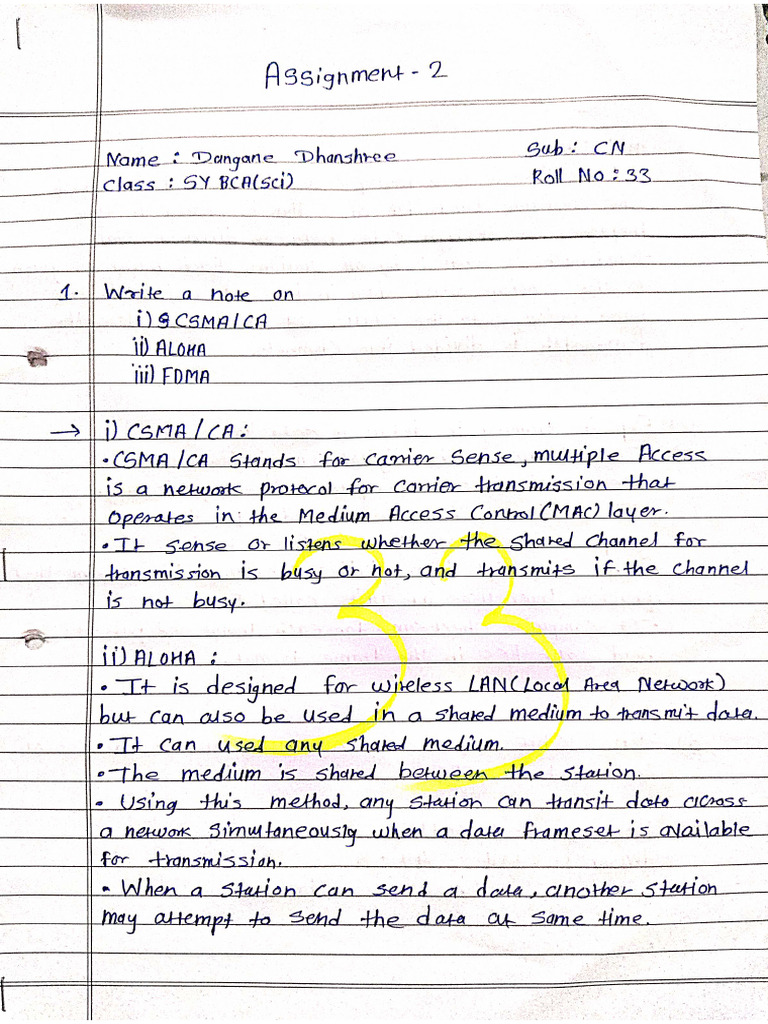 Assignment - 2
Name : Dangane Dhanshree Sub : CN
Class : SY BCA(Sci) Roll No : 33
1. Write a note on
i) CSMA/CA
ii) ALOHA
iii) FDMA
→ i) CSMA/CA :
• CSMA/CA stands for Carrier Sense, multiple Access
is a network protocol for carrier transmission that
operates in the Medium Access Control(MAC) layer.
• It sense or listens whether the shared channel for
transmission is busy or not, and transmits if the channel
is not busy.
33
ii) ALOHA :
• It is designed for wireless LAN(Local Area Network)
but can also be used in a shared medium to transmit data.
• It can used any shared medium.
• The medium is shared between the station.
• Using this method, any station can transit data across
a network simultaneously when a data frameset is available
for transmission.
• When a station can send a data, another station
may attempt to send the data at same time.